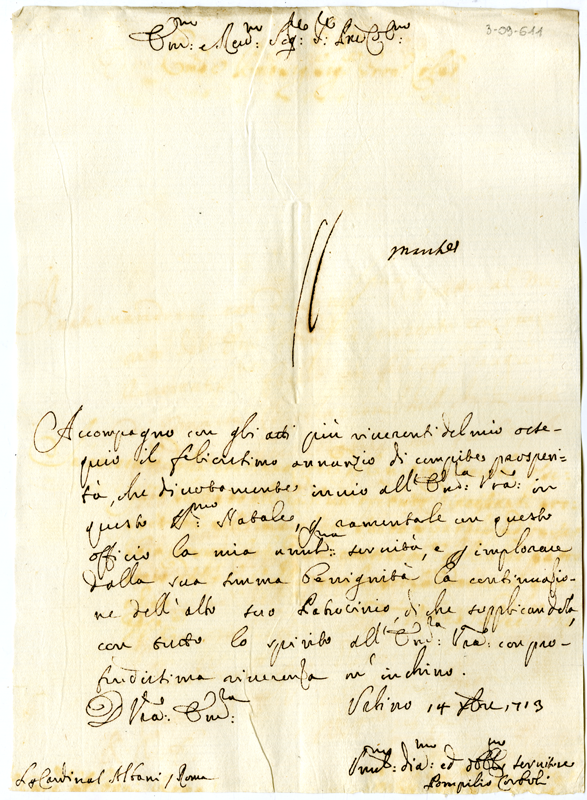 3-09-611
Em:mo e Rev:mo Sig:re P:re Col:mo
Accompagno con gli atti più riverenti del mio osse-
quio il felicissimo annunzio di compite prosperi-
tà, che divotamente invio all'Em:za V:ra in
questo S:mo Natale, p ramentarle con questo
officio la mia umil:ma servitù, e p implorare
dalla sua somma Benignità la continuazio-
ne dell'alto suo Patrocinio, di che supplicandola
con tutto lo spirito all'Em:za V:ra con pro-
fondissima riverenza m'inchino.
D V:ra Em:za
Urbino 14 Xbre 1713
Um:mo dev:mo ed obb:mo servitore
Pompilio Corboli
S:r Cardinal Albani / Roma